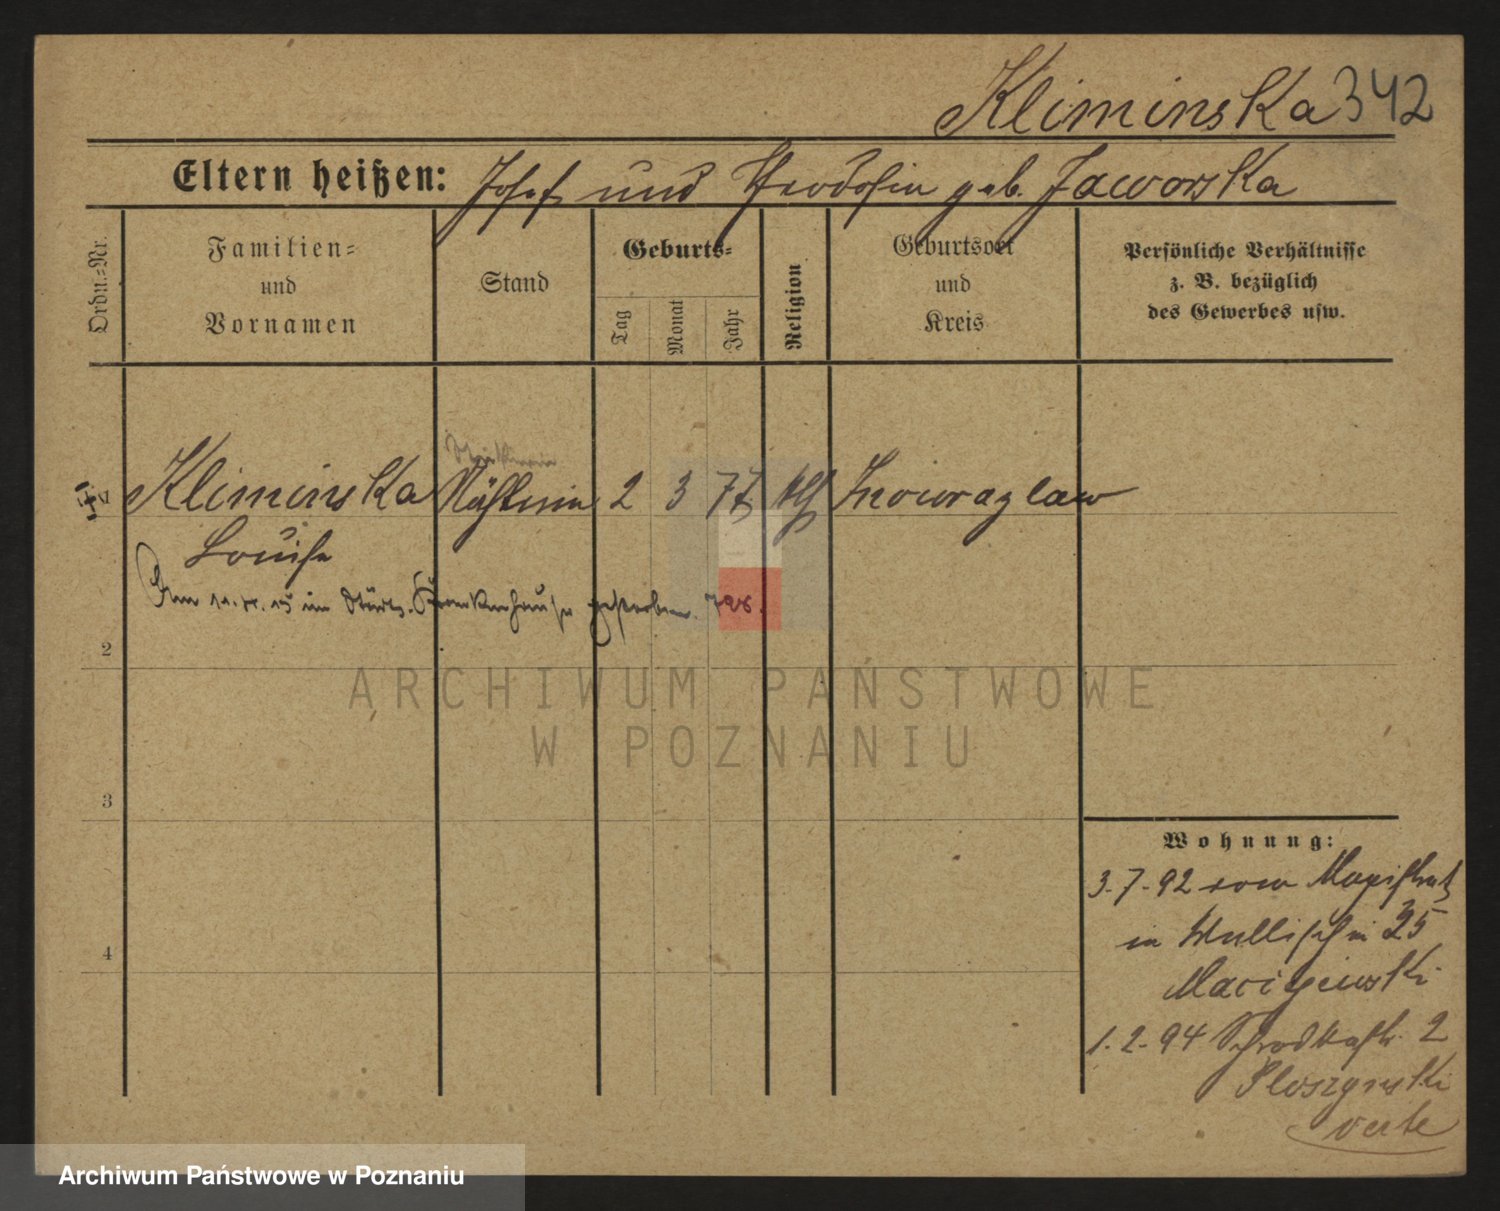 Kliminska 342
Eltern heißen: Josef und Theodosia geb. Jaworska
Ordn.-Nr.
Familien-
und
Vornamen
Stand
Geburts-
Tag
Monat
Jahr
Religion
Geburtsort
und
Kreis
Persönliche Verhältnisse
z. B. bezüglich
des Gewerbes usw.
Kliminska Nähterin 2 3 77 kth Inowrazlaw
Louise
Am 11. 15 im Städt. Krankenhause gestorben.
2
3
4
Wohnung:
3.7.92 vom Magistrat
in Wallischei 35
Maciejewski
1.2.94 Schrodkastr. 2
Ploszynski
verte
ARCHIWUM PAŃSTWOWE
W POZNANIU
Archiwum Państwowe w Poznaniu